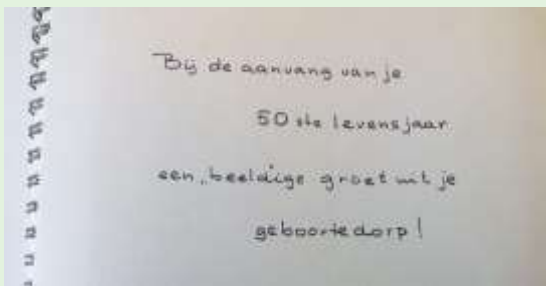 Bij de aanvang van je
50 ste levensjaar
een „beeldige groet uit je
geboortedorp!